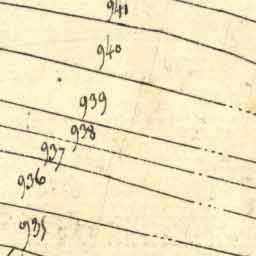 941
940
939
938
937
936
935